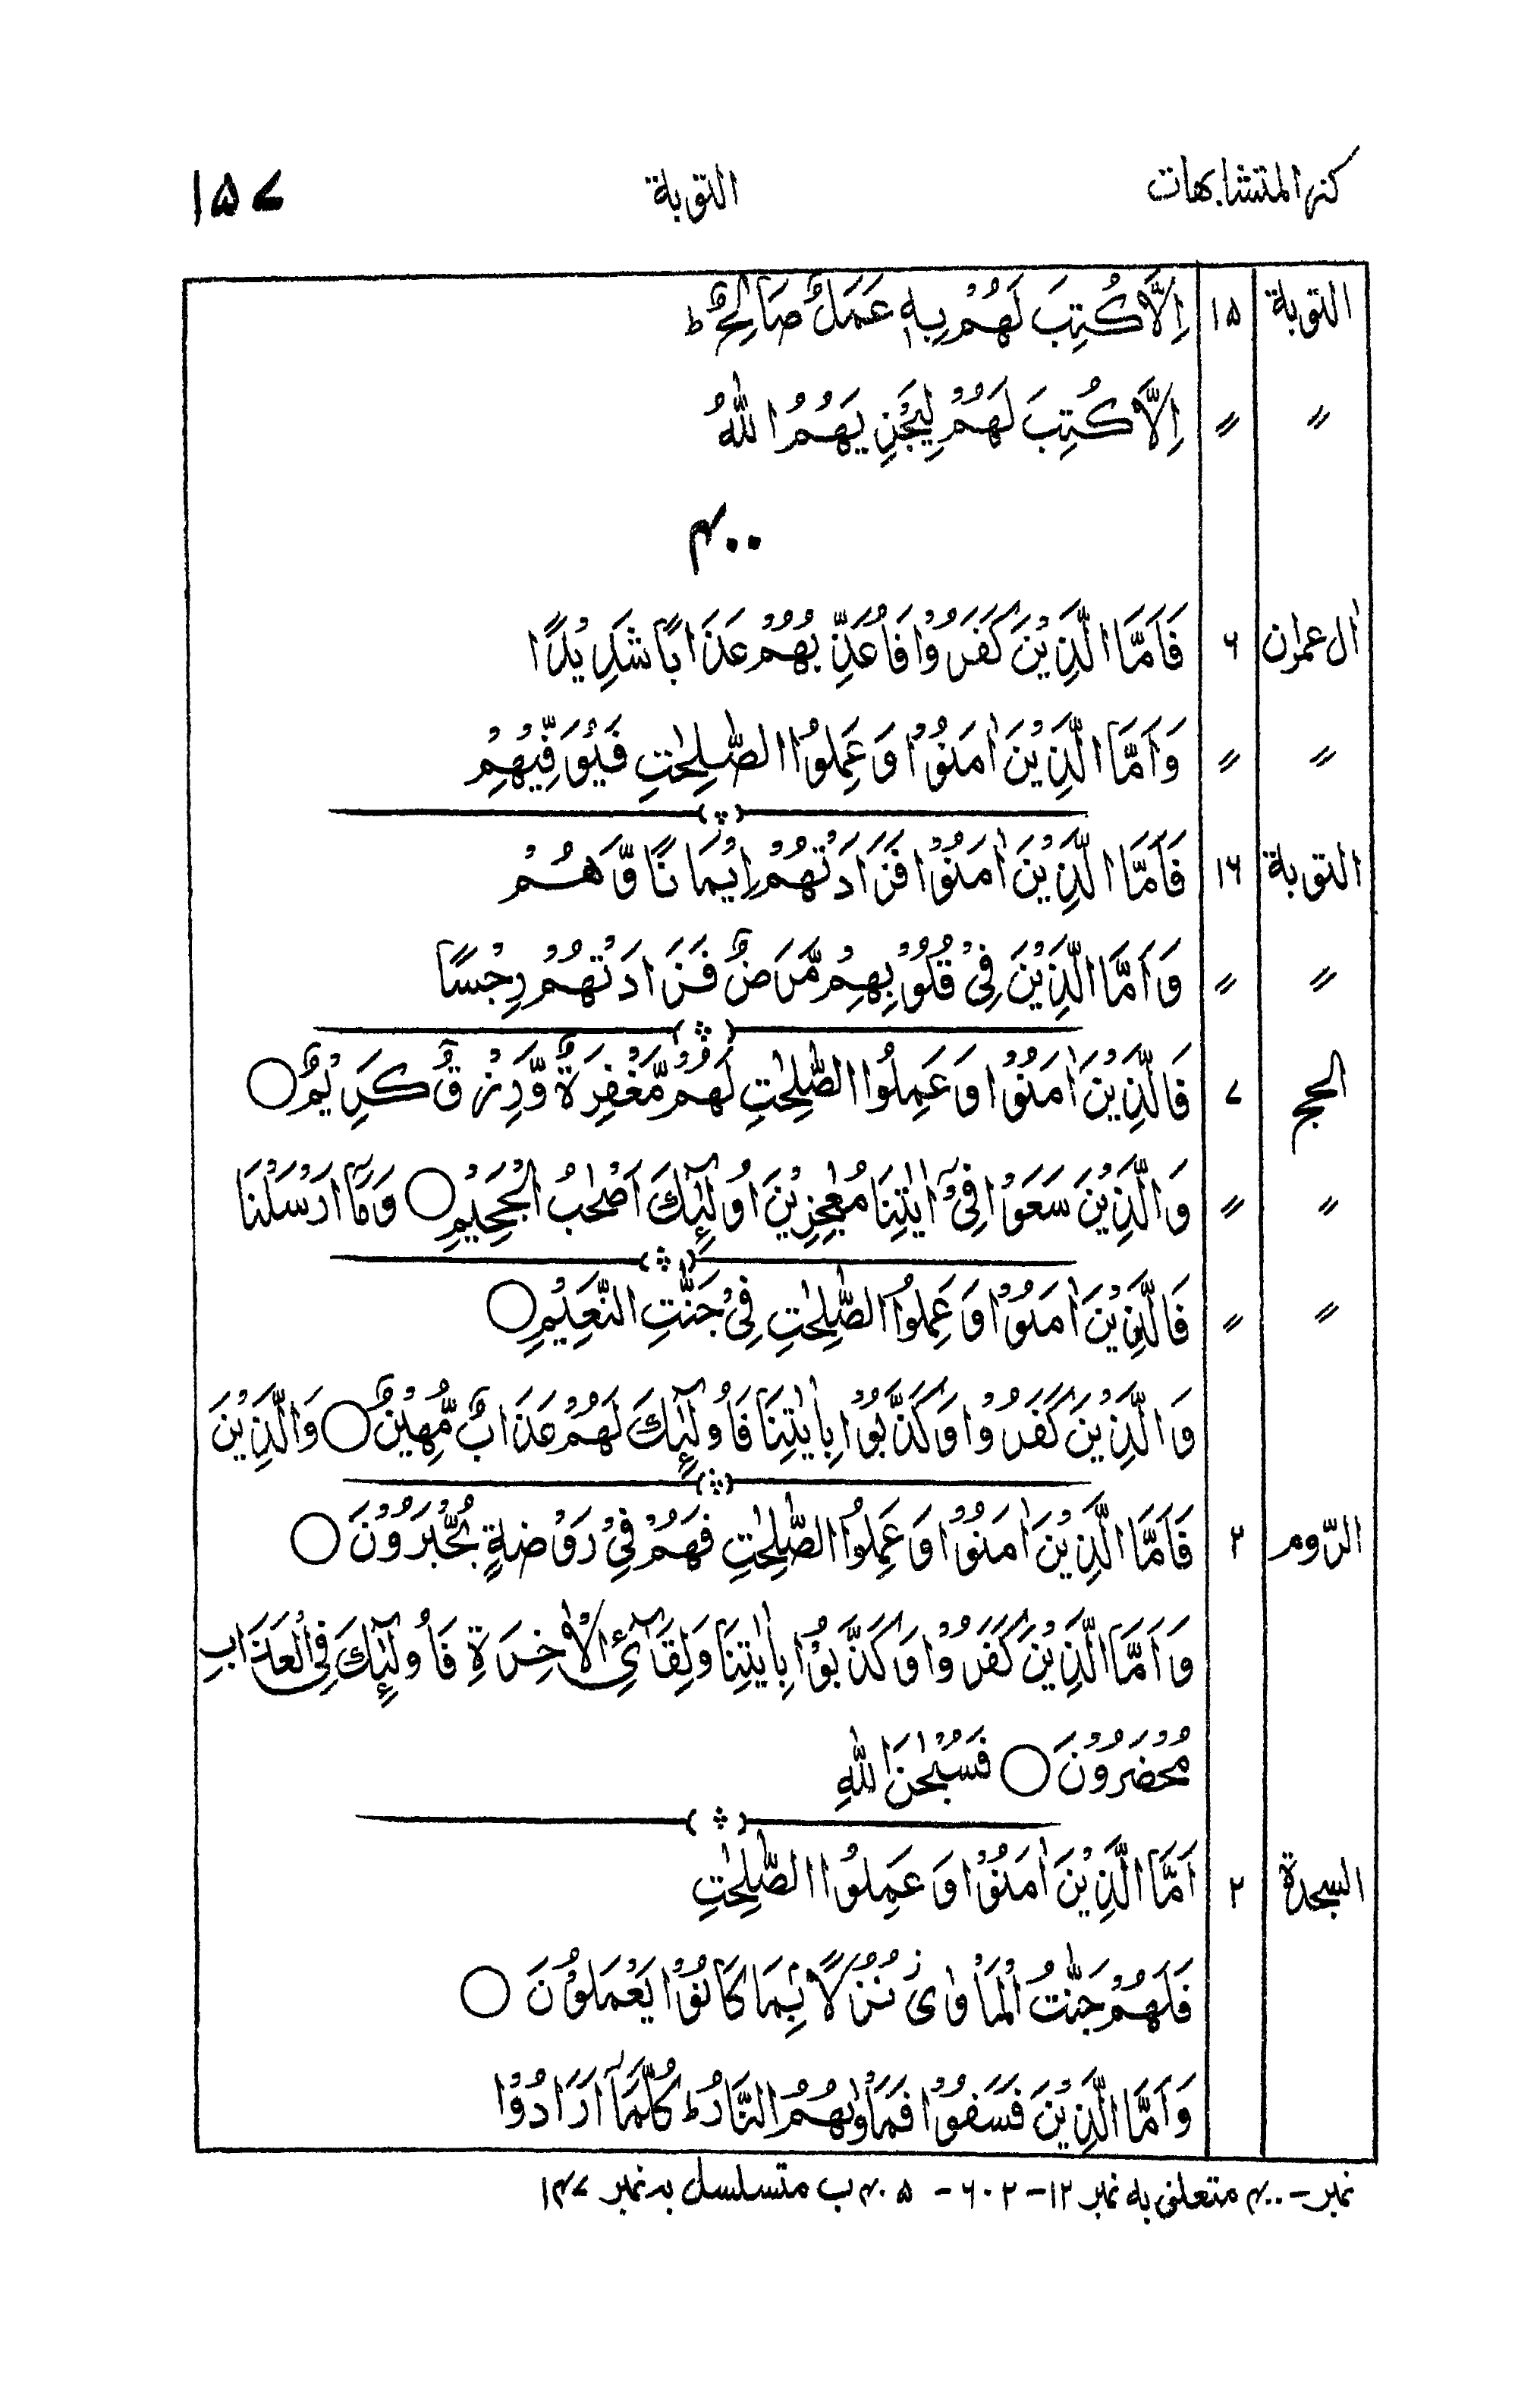 كنز المتشابهات التوبة ١٥٧
التوبة ١٥ اِلَّا كُتِبَ لَهُمْ بِهٖ عَمَلٌ صَالِحٌ ؕ
〃 〃 اِلَّا كُتِبَ لَهُمْ لِيَجْزِيَهُمُ اللّٰهُ
۴۰۰
اٰل عمرٰن ۶ فَاَمَّا الَّذِيْنَ كَفَرُوْا فَاُعَذِّبُهُمْ عَذَابًا شَدِيْدًا
〃 〃 وَاَمَّا الَّذِيْنَ اٰمَنُوْا وَعَمِلُوا الصّٰلِحٰتِ فَيُوَفِّيْهِمْ
التوبة ۱۶ فَاَمَّا الَّذِيْنَ اٰمَنُوْا فَزَادَتْهُمْ اِيْمَانًا وَّهُمْ
〃 〃 وَاَمَّا الَّذِيْنَ فِيْ قُلُوْبِهِمْ مَّرَضٌ فَزَادَتْهُمْ رِجْسًا
الحج ۷ فَالَّذِيْنَ اٰمَنُوْا وَعَمِلُوا الصّٰلِحٰتِ لَهُمْ مَّغْفِرَةٌ وَّرِزْقٌ كَرِيْمٌ ○
〃 〃 وَالَّذِيْنَ سَعَوْا فِيْٓ اٰيٰتِنَا مُعٰجِزِيْنَ اُولٰٓئِكَ اَصْحٰبُ الْجَحِيْمِ ○ وَمَآ اَرْسَلْنَا
〃 〃 فَالَّذِيْنَ اٰمَنُوْا وَعَمِلُوا الصّٰلِحٰتِ فِيْ جَنّٰتِ النَّعِيْمِ ○
وَالَّذِيْنَ كَفَرُوْا وَكَذَّبُوْا بِاٰيٰتِنَا فَاُولٰٓئِكَ لَهُمْ عَذَابٌ مُّهِيْنٌ ○ وَالَّذِيْنَ
الرّوم ۲ فَاَمَّا الَّذِيْنَ اٰمَنُوْا وَعَمِلُوا الصّٰلِحٰتِ فَهُمْ فِيْ رَوْضَةٍ يُّحْبَرُوْنَ ○
وَاَمَّا الَّذِيْنَ كَفَرُوْا وَكَذَّبُوْا بِاٰيٰتِنَا وَلِقَآئِ الْاٰخِرَةِ فَاُولٰٓئِكَ فِي الْعَذَابِ
مُحْضَرُوْنَ ○ فَسُبْحٰنَ اللّٰهِ
السجدة ۲ اَمَّا الَّذِيْنَ اٰمَنُوْا وَعَمِلُوا الصّٰلِحٰتِ
فَلَهُمْ جَنّٰتُ الْمَاْوٰى ز نُزُلًا بِۢمَا كَانُوْا يَعْمَلُوْنَ ○
وَاَمَّا الَّذِيْنَ فَسَقُوْا فَمَاْوٰىهُمُ النَّارُ ؕ كُلَّمَآ اَرَادُوْٓا
نمبر - ۴۰۰ متعلق به نمبر ۱۲ - ۶۰۲ - ۴۰۵ ب متسلسل به نمبر ۱۴۷